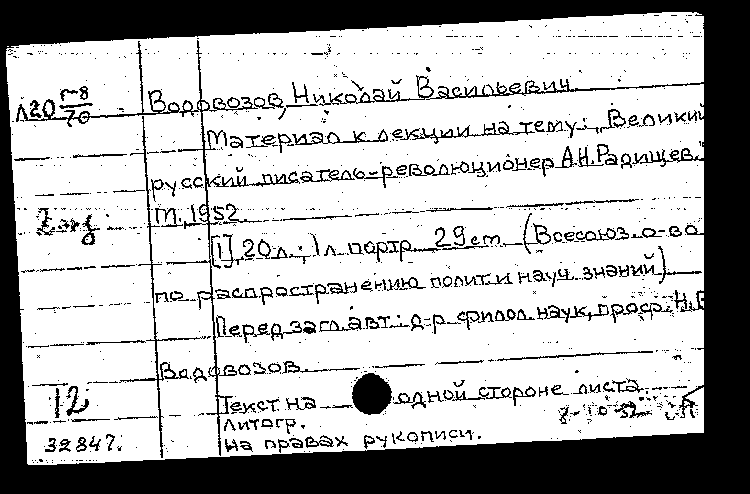 Л20 М8/70
Водовозов, Николай Васильевич.
Материал к лекции на тему: „Великий
русский писатель-революционер А.Н.Радищев."
М., 1952.
[1], 20 л.; 1 л. портр. 29 см. (Всесоюз. о-во
по распространению полит. и науч. знаний)
Перед загл. авт.: д-р филол. наук, проф. Н.В.
Водовозов.
12
Текст на одной стороне листа.
Литогр.
На правах рукописи.
32847.